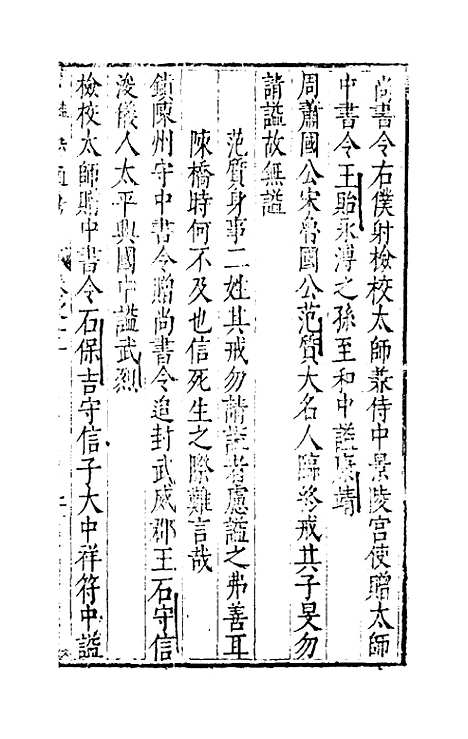 尚書令右僕射檢校太師兼侍中景陵宮使贈太師
中書令王貽永溥之孫至和中謚康靖
周蕭國公宋魯國公范質大名人臨終戒其子旻勿
請謚故無謚
范質身事二姓其戒勿請謚者慮謚之弗善耳
陳橋時何不及也信死生之際難言哉
鎮陳州守中書令贈尚書令追封武威郡王石守信
浚儀人太平興國中謚武烈
檢校太師贈中書令石保吉守信子大中祥符中謚